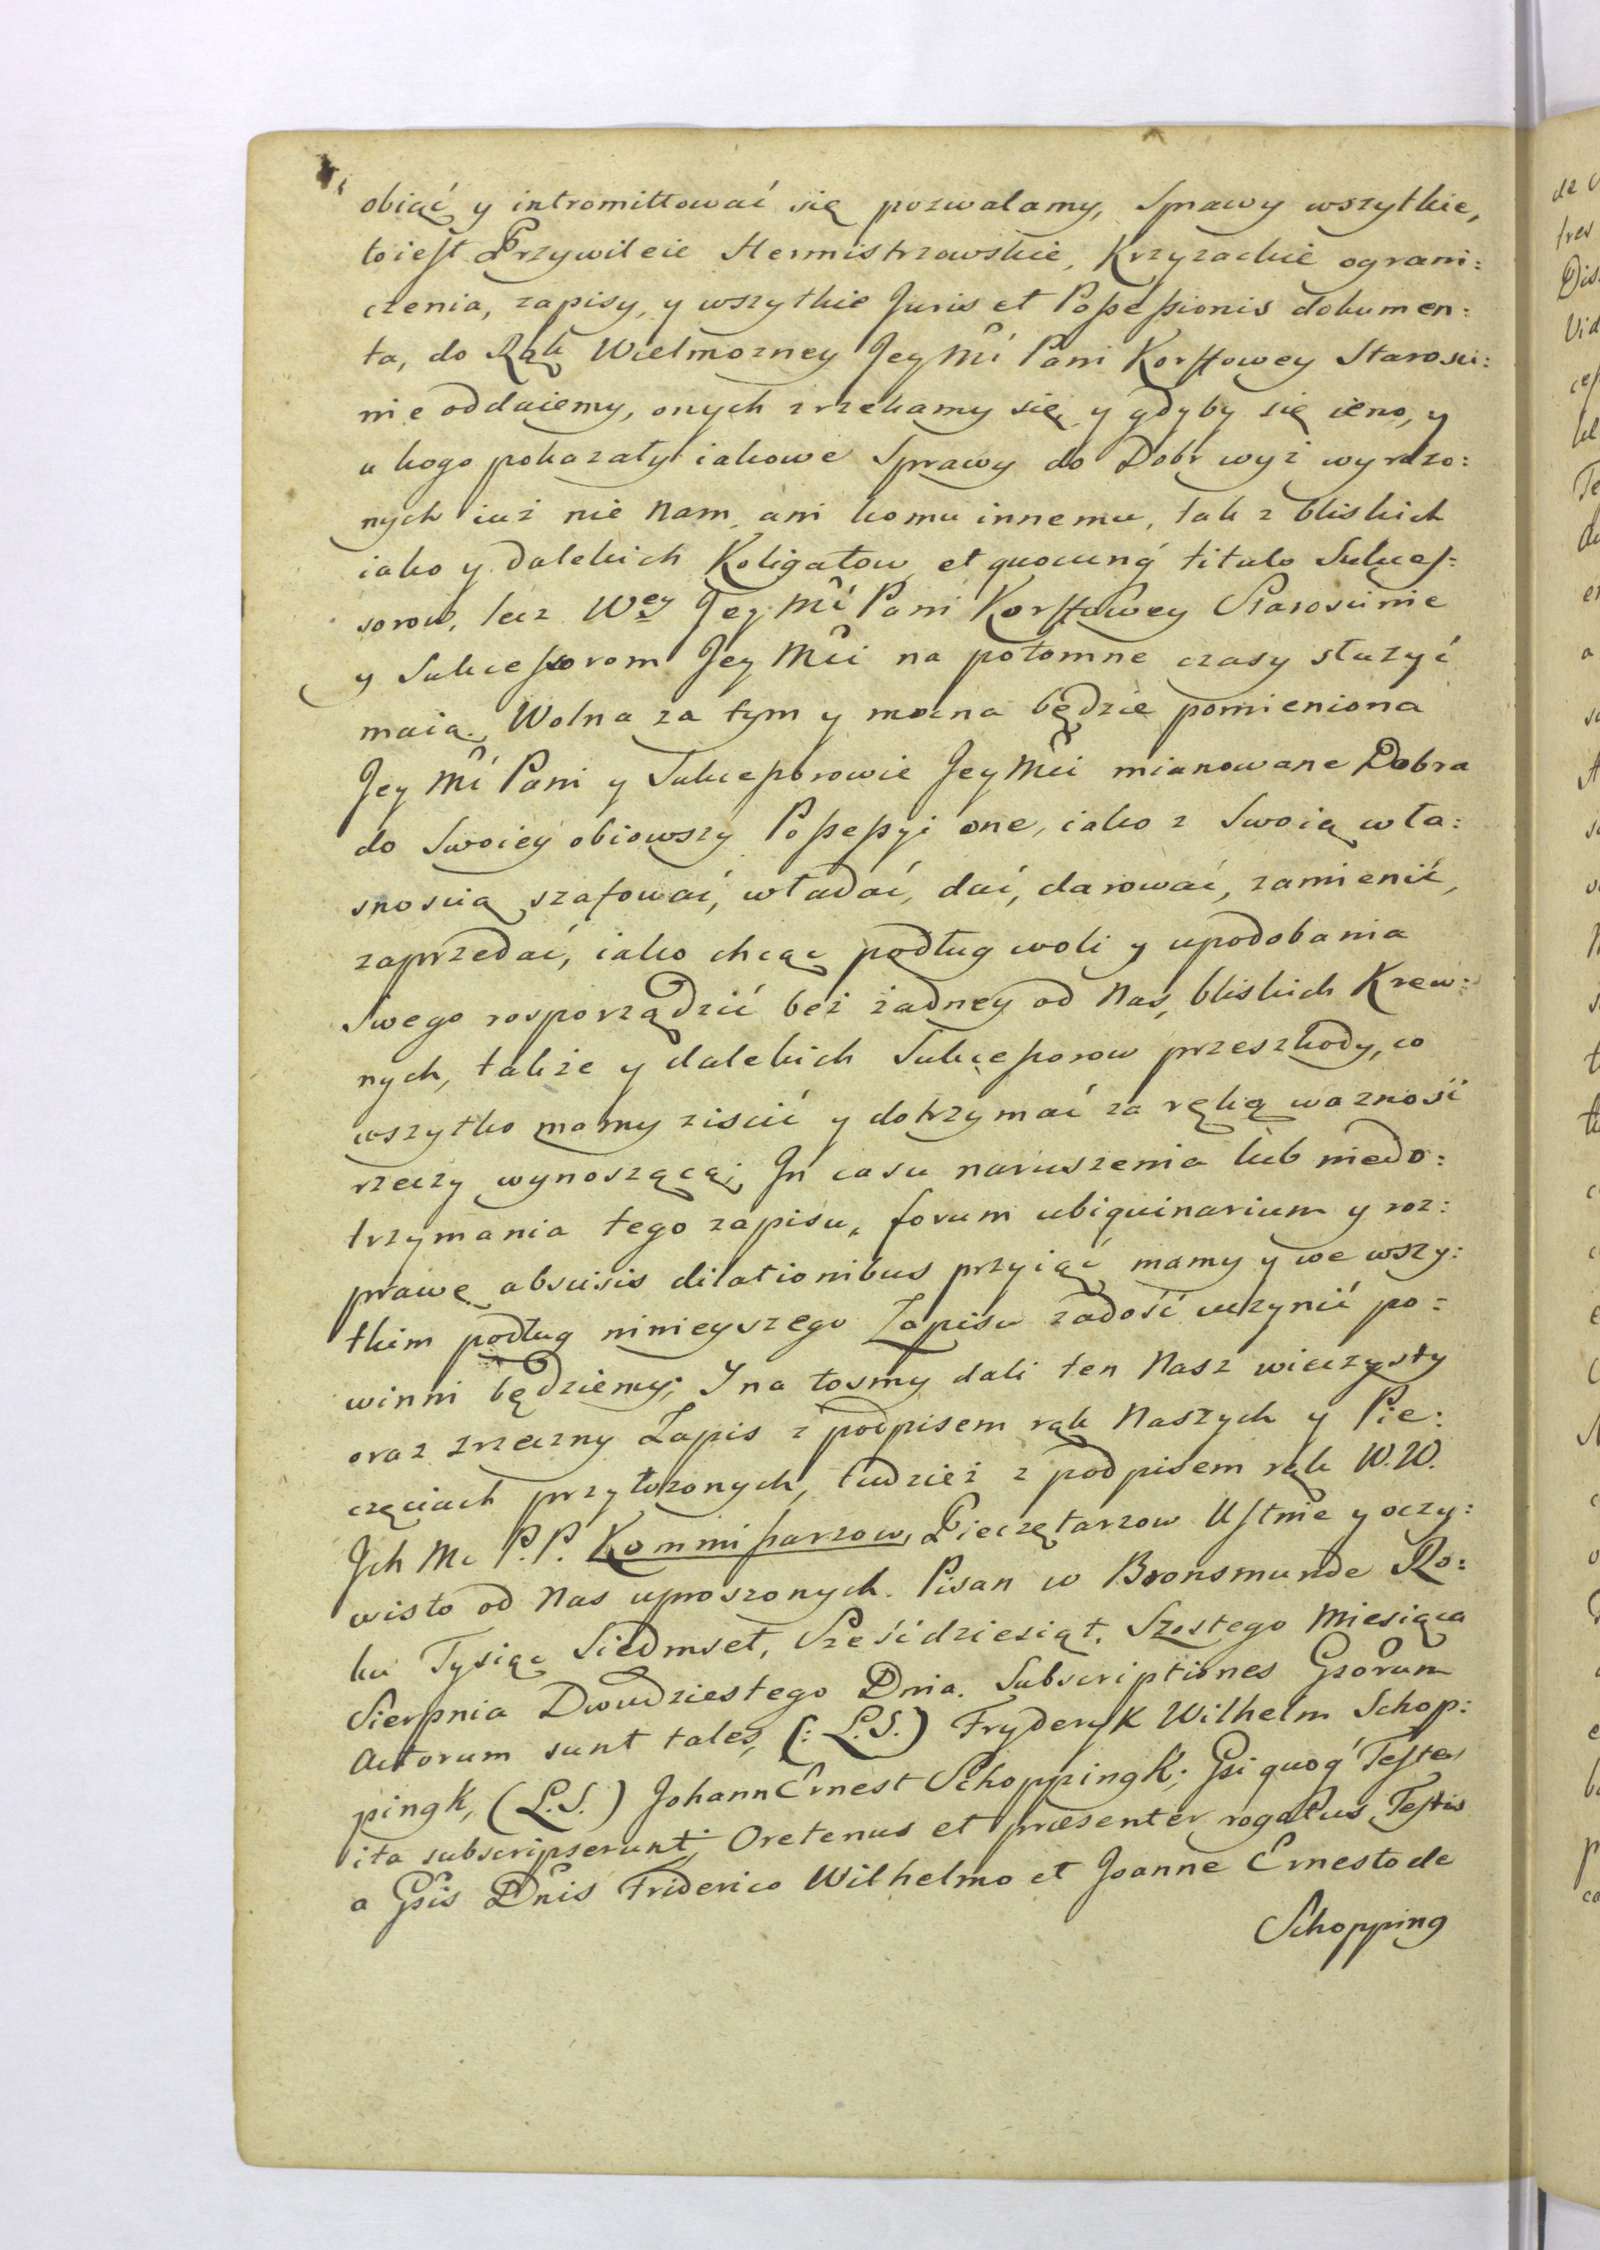 obiąć y intromittować się pozwalamy, Sprawy wszytkie,
toiest Przywileie Hermistrzowskie, Krzyzackie ograni:
czenia, zapisy, y wszytkie Juris et Possessionis dokumen:
ta, do Rąk Wielmozney Jey Mci Pani Korffowey Starosci:
nie oddaiemy, onych zrzekamy się, y gdyby się ieno, y
u kogo pokazały iakowe Sprawy do Dobr wyż wyrazo:
nych iuż nie Nam, ani komu innemu, tak z bliskich
iako y dalekich Koligatow et quocunq titulo Sukces:
sorow, lecz Wey Jey Mci Pani Korffowey Starościnie
y Sukcessorom Jey Mci na potomne czasy służyć
maią. Wolna za tym y mocna będzie pomieniona
Jey Mci Pani y Sukcessorowie Jey Mci mianowane Dobra
do Swoiey obiowszy Possessyi one, iako z Swoią wła:
snoscią szafować, władać, dać, darować, zamienić,
zaprzedać, iako chcąc podług woli y upodobania
Swego rosporządzić beż żadney od Nas, bliskich Krew:
nych, także y dalekich Sukcessorow przeszkody, co
wszytko mamy ziscić y dotrzymać za ręką ważność
rzeczy wynoszącą; In casu naruszenia lub niedo:
trzymania tego zapisu, forum ubiquinarium y roz:
prawę abscisis dilationibus przyiąć mamy y we wszy:
tkim podług ninieyszego Zapisu zadość uczynić po:
winni będziemy; J na tosmy dali ten Nasz wieczysty
oraz zrzeczny Zapis z podpisem rąk Naszych y Pie:
częciach przyłozonych, tudzież z podpisem rąk W.W.
Jch Mc P.P. Kommissarzow, Pieczętarzow Ustnie y oczy:
wisto od Nas uproszonych. Pisan w Bronsmunde Ro:
ku Tysiąc Siedmset, Sześćdziesiąt, Szostego Miesiąca
Sierpnia Dwudziestego Dnia. Subscriptiones Gsorum
Actorum sunt tales, (: L.S.) Fryderyk Wilhelm Schop:
pingk, (L.S.) Johann Ernest Schoppingk; Gsi quoq Testes
ita subscripserunt; Oretenus et præsenter rogatus Testis
a Gsis Dnis Friderico Wilhelmo et Joanne Ernesto de
Schopping